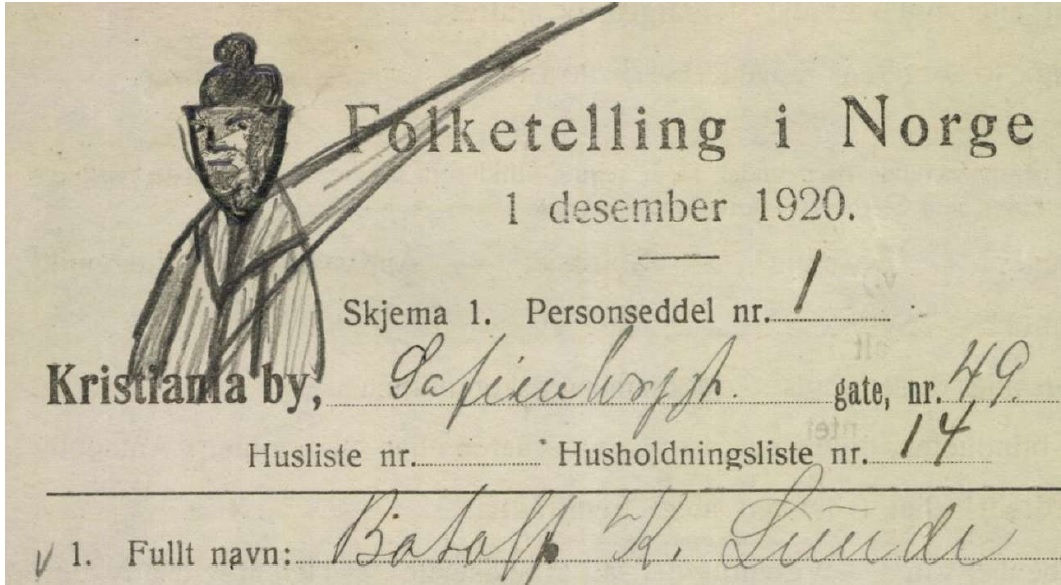 Folketelling i Norge
1 desember 1920.
Skjema 1. Personseddel nr. 1
Kristiania by, gate, nr. 49.
Husliste nr. Husholdningsliste nr. 14
1. Fullt navn: K. Lunde